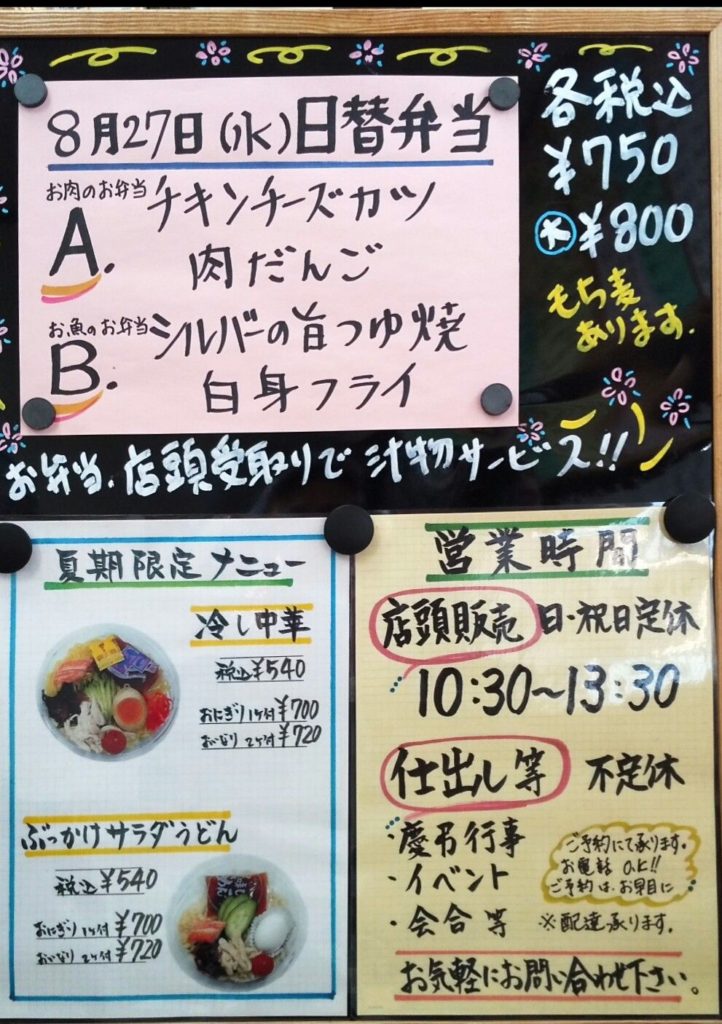 8月27日(水)日替弁当
お肉のお弁当
A. チキンチーズカツ
肉だんご
お魚のお弁当
B. シルバーの旨つゆ焼
白身フライ
各税込
¥750
大 ¥800
もち麦
あります.
お弁当、店頭受取りで 汁物サービス!!
夏期限定メニュー
冷し中華
税込¥540
おにぎり1ケ付¥700
おいなり2ケ付¥720
ぶっかけサラダうどん
税込¥540
おにぎり1ケ付¥700
おいなり2ケ付¥720
営業時間
店頭販売 日・祝日定休
10:30~13:30
仕出し等 不定休
・慶弔行事
・イベント
・会合等
ご予約にて承ります。
お電話OK!!
ご予約は、お早目に
※配達承ります。
お気軽にお問い合わせ下さい。